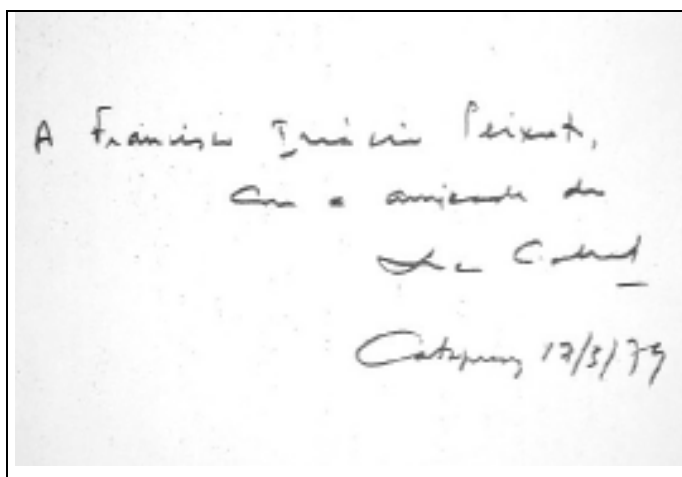 A Francisco Inácio Peixoto,
Com a amizade do
Cabral
12/5/79